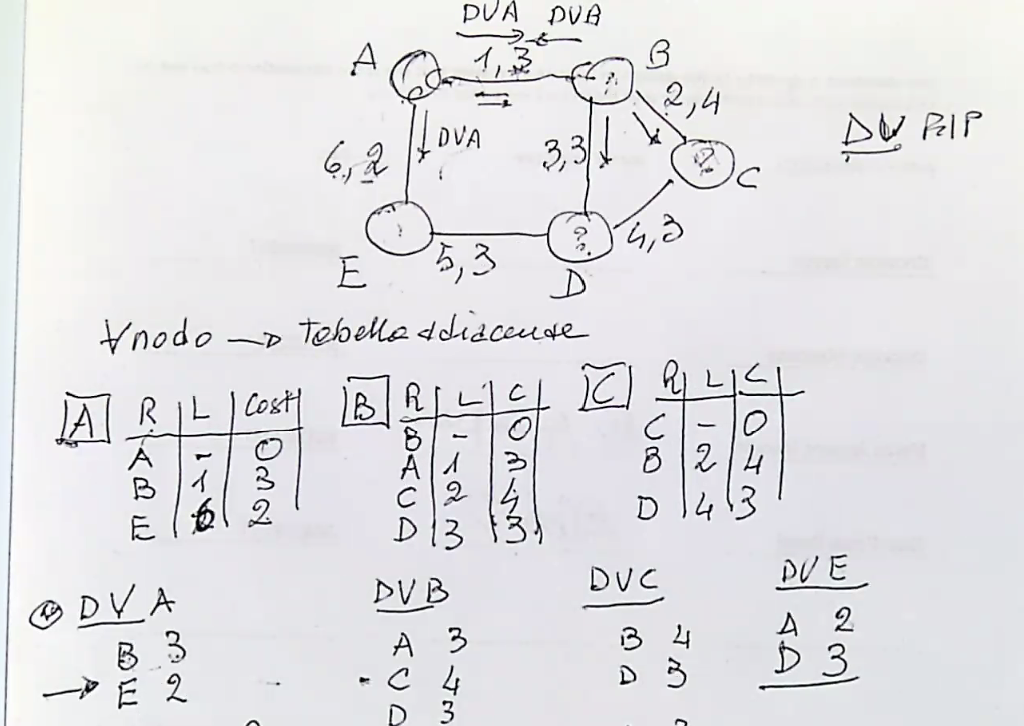 DVA DVB
A 1,3 B
2,4
DVA
DV RIP
6,2 3,3
? C
?
4,3
E 5,3 D
∀nodo → tabella adiacenze
A R L Cost
A - 0
B 1 3
E 6 2
B R L C
B - 0
A 1 3
C 2 4
D 3 3
C R L C
C - 0
B 2 4
D 4 3
DVA
B 3
→ E 2
DVB
A 3
C 4
D 3
DVC
B 4
D 3
DVE
A 2
D 3